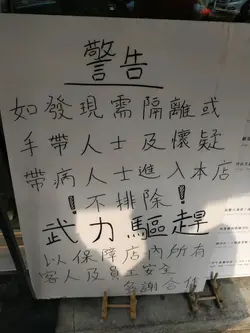 警告
如發現需隔離或
手帶人士及懷疑
帶病人士進入本店
！不排除！
武力驅趕
以保障店內所有
客人及員工安全
多謝合作